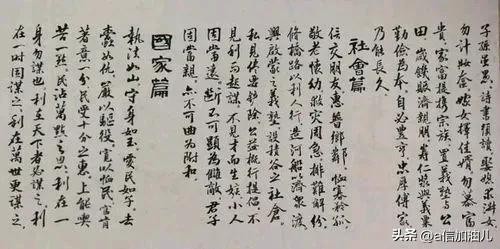 子孫雖愚，詩書須讀。娶媳求淑女
勿計妝奩，嫁女擇佳婿，勿慕富
貴。家富提攜宗族，置義塾與公
田，歲饑賑濟親朋，籌仁漿與義粟。
勤儉為本，自必豐亨，忠厚傳家，
乃能長久。
社會篇
信交朋友，惠普鄉鄰。恤寡矜孤，
敬老懷幼。救灾周急，排難解紛。
修橋路以利人行，造河船以濟衆渡。
興啟蒙之義塾，設積谷之社倉。
私見盡要鏟除，公益概行提倡。不
見利而起謀，不見才而生嫉。小人
固當遠，斷不可顯為雠敵。君子
固當親，亦不可曲為附和
國家篇
執法如山，守身如玉，愛民如子，去
蠹如仇。嚴以馭役，寬以恤民。官肯
著意一分，民受十分之惠。上能吃
苦一點，民沾萬點之恩。利在一
身勿謀也，利在天下者必謀之；利
在一時固謀之，利在萬世更謀之。
头条 @a信加油儿